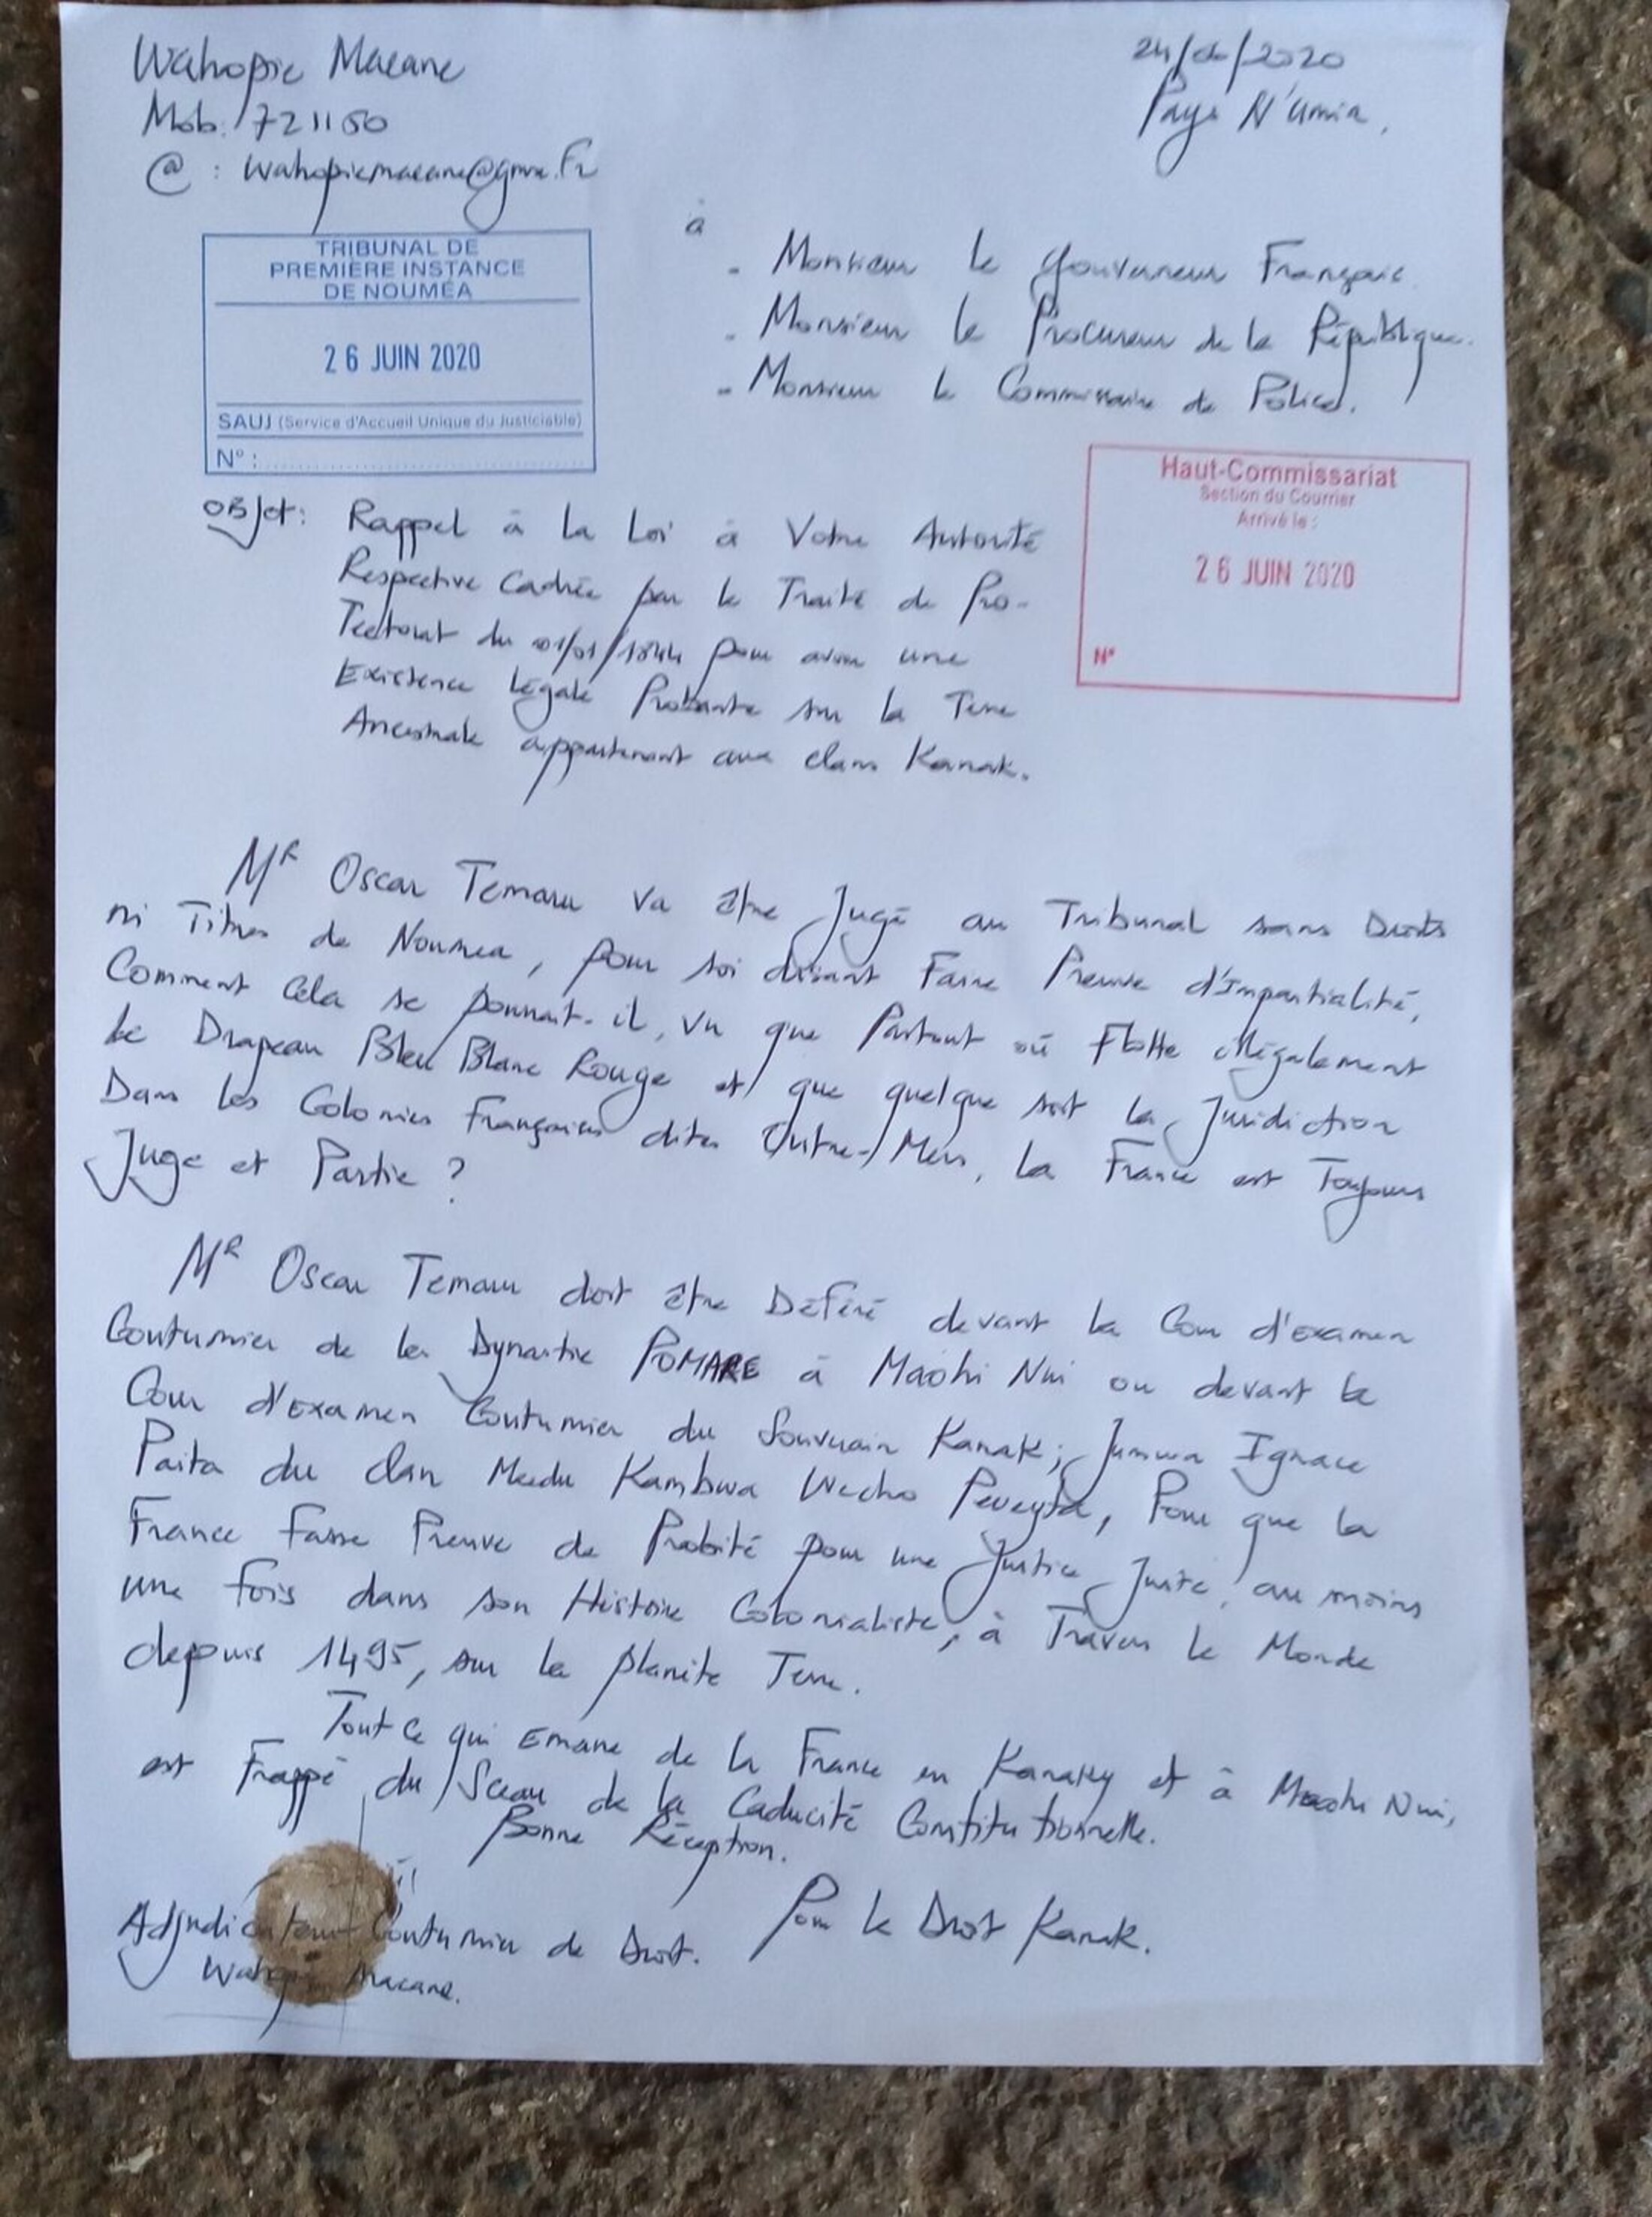 Wahopie Macane
24/06/2020
Mob: 721150
Pays N'umia,
@ : wahopiemacane@gmx.Fr
à
- Monsieur le Gouverneur Français
- Monsieur le Procureur de la République.
- Monsieur le Commissaire de Police.
TRIBUNAL DE
PREMIÈRE INSTANCE
DE NOUMÉA
26 JUIN 2020
SAUJ (Service d'Accueil Unique du Justiciable)
N° :
Haut-Commissariat
Section du Courrier
Arrivé le :
26 JUIN 2020
N°
OBJet: Rappel à la Loi à Votre Autorité
Respective Cadrée par le Traité de Pro-
Tectorat du 01/01/1844 pour avoir une
Existence légale Probante sur la Terre
Ancestrale appartenant aux clans Kanak.
MR Oscar Temaru va être Jugé au Tribunal sans Droits
ni Titres de Noumea, pour soi disant Faire Preuve d'Impartialité,
Comment Cela se pourrait-il, vu que Partout où Flotte illégalement
le Drapeau Bleu Blanc Rouge et que quelque soit la Juridiction
Dans les Colonies Françaises dites Outre-Mers, la France est Toujours
Juge et Partie ?
MR Oscar Temaru doit être Déféré devant la Cour d'examen
Coutumier de la Dynastie POMARE à Maohi Nui ou devant la
Cour d'Examen Coutumier du Souverain Kanak; Junwa Ignace
Paita du Clan Meedu Kambwa Wecho Peveyta, Pour que la
France fasse Preuve de Probité pour une Justice Juste, au moins
une fois dans son Histoire Colonialiste, à Travers le Monde
depuis 1495, sur la planète Terre.
Tout Ce qui Emane de la France en Kanaky et à Maohi Nui,
est Frappé du Sceau de la Caducité Constitutionnelle.
Bonne Réception.
Pour le Droit Kanak.
Adjudicateur Coutumier de Droit.
Wahopie Macane.